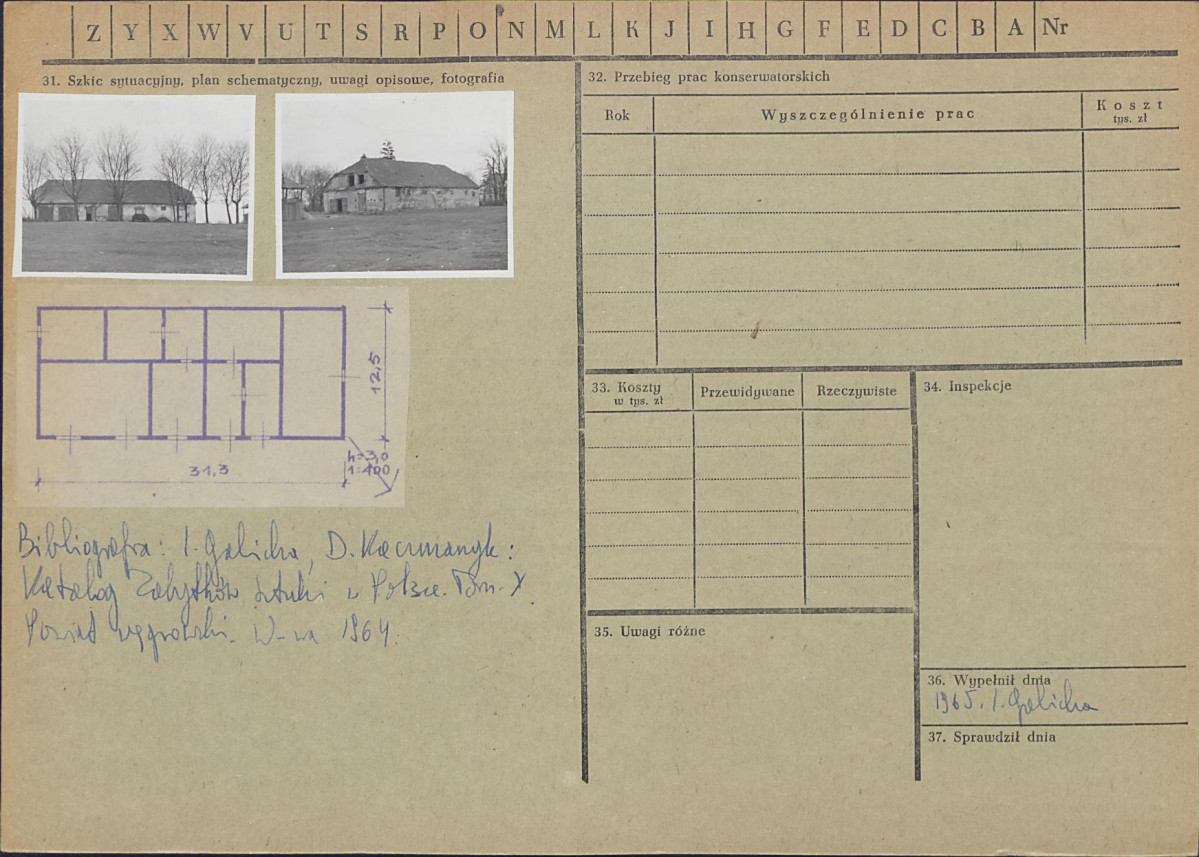 Z Y X W V U T S R P O N M L K J I H G F E D C B A Nr
31. Szkic sytuacyjny, plan schematyczny, uwagi opisowe, fotografia
12,5
31,3
h=3,0
1:400
Bibliografia: I. Galicka, D. Kaczmarzyk:
Katalog Zabytków Sztuki w Polsce. Tom. X
Powiat węgrowski. W-wa 1964.
32. Przebieg prac konserwatorskich
Rok Wyszczególnienie prac Koszt
tys. zł
33. Koszty Przewidywane Rzeczywiste
w tys. zł
34. Inspekcje
35. Uwagi różne
36. Wypełnił dnia
1965. I. Galicka
37. Sprawdził dnia